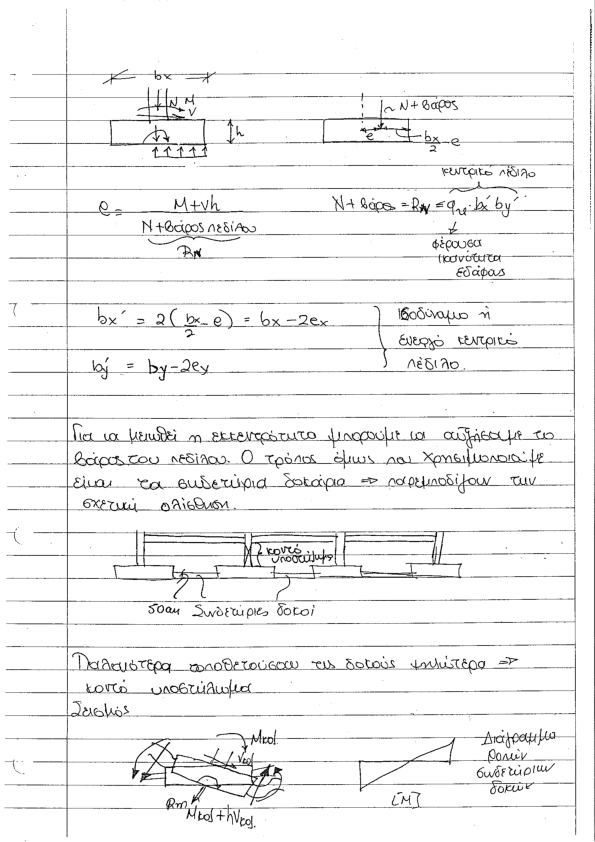 bx
N M
V
h
N + βάρος
e
bx/2 - e
κεντρικό πέδιλο
e = (M + Vh) / (N + βάρος πεδίλου)
RN
N + βάρος = RN = qu · bx' by'
φέρουσα
ικανότητα
εδάφους
bx' = 2 (bx/2 - e) = bx - 2ex
by' = by - 2ey
Ισοδύναμο ή
ενεργό κεντρικό
πέδιλο.
Για να μειωθεί η εκκεντρότητα μπορούμε να αυξήσουμε το
βάρος του πεδίλου. Ο τρόπος όμως που χρησιμοποιούμε
είναι τα συνδετήρια δοκάρια ⇒ παρεμποδίζουν την
σχετική ολίσθηση.
κοντό
υποστύλωμα
50cm Συνδετήριες δοκοί
Παλαιότερα τοποθετούσαν τις δοκούς ψηλότερα ⇒
κοντό υποστύλωμα
Σεισμός
Mκολ.
Vκολ.
Rm
Mκολ + hVκολ.
[M]
Διάγραμμα
ροπών
συνδετήριων
δοκών